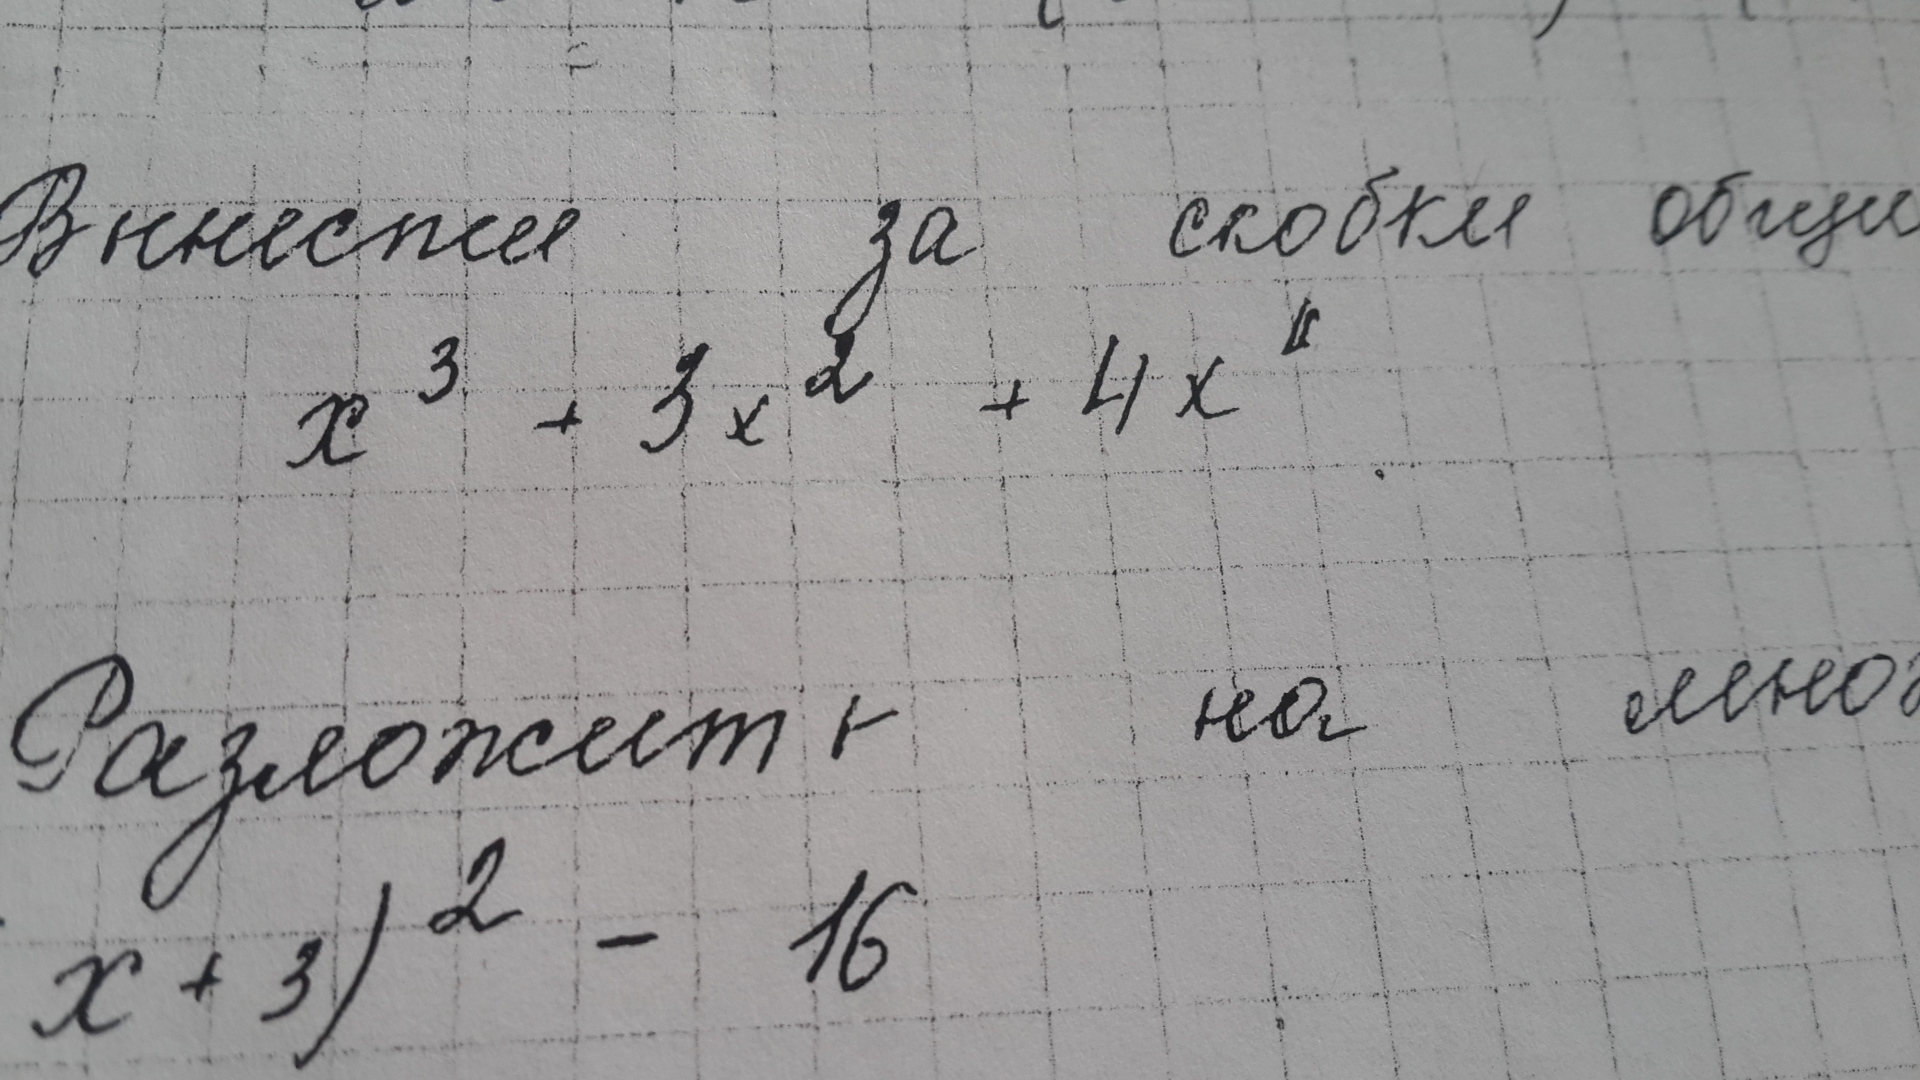 Вынести за скобки общи
x³ + 3x² + 4x
Разложить на множ
x + 3)² - 16